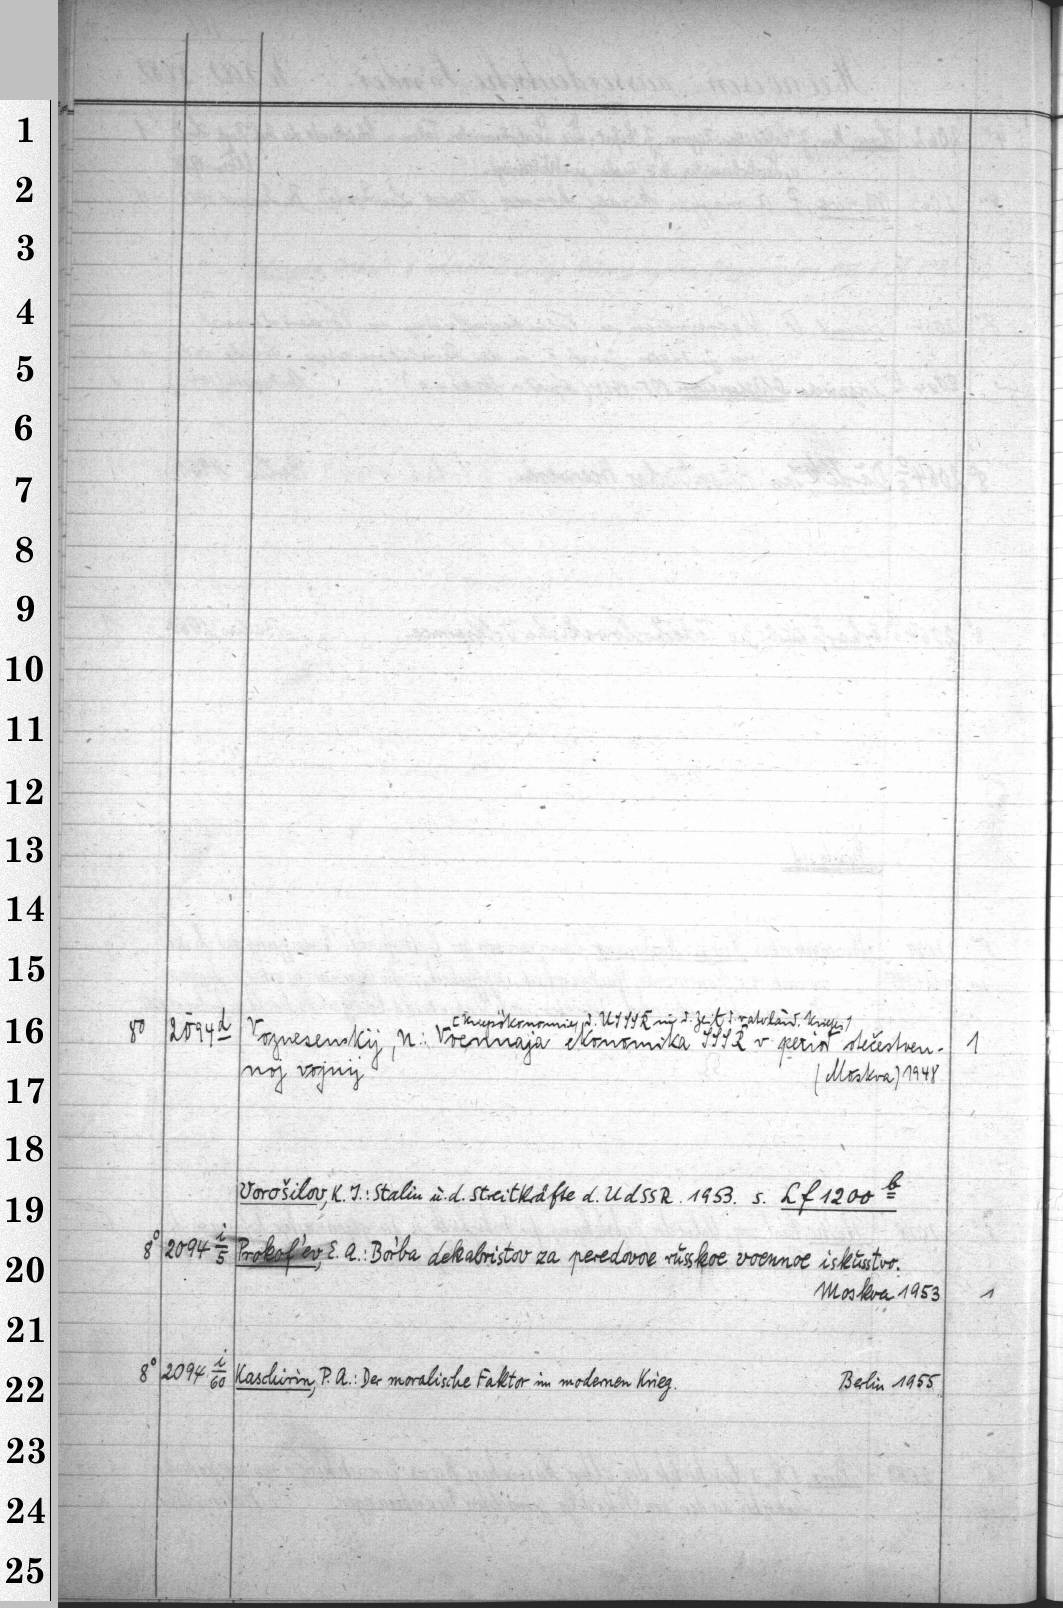 1
2
3
4
5
6
7
8
9
10
11
12
13
14
15
[Kriegsökonomie d. USSSR in d. Zeit d. vaterländ. Krieges]
16 8° 2094 d Voznesenskij, N.: Voennaja ekonomika SSSR v period otečestven- 1
noj vojny (Moskva) 1948
17
18
19 Vorošilov, K. J.: Stalin u. d. Streitkräfte d. UdSSR. 1953. s. Lf 1200 b
20 8° 2094 i/5 Prokof'ev, E. A.: Bor'ba dekabristov za peredovoe russkoe voennoe iskusstvo.
Moskva 1953 1
21
22 8° 2094 i/60 Kaschirin, P. A.: Der moralische Faktor im modernen Krieg. Berlin 1955
23
24
25